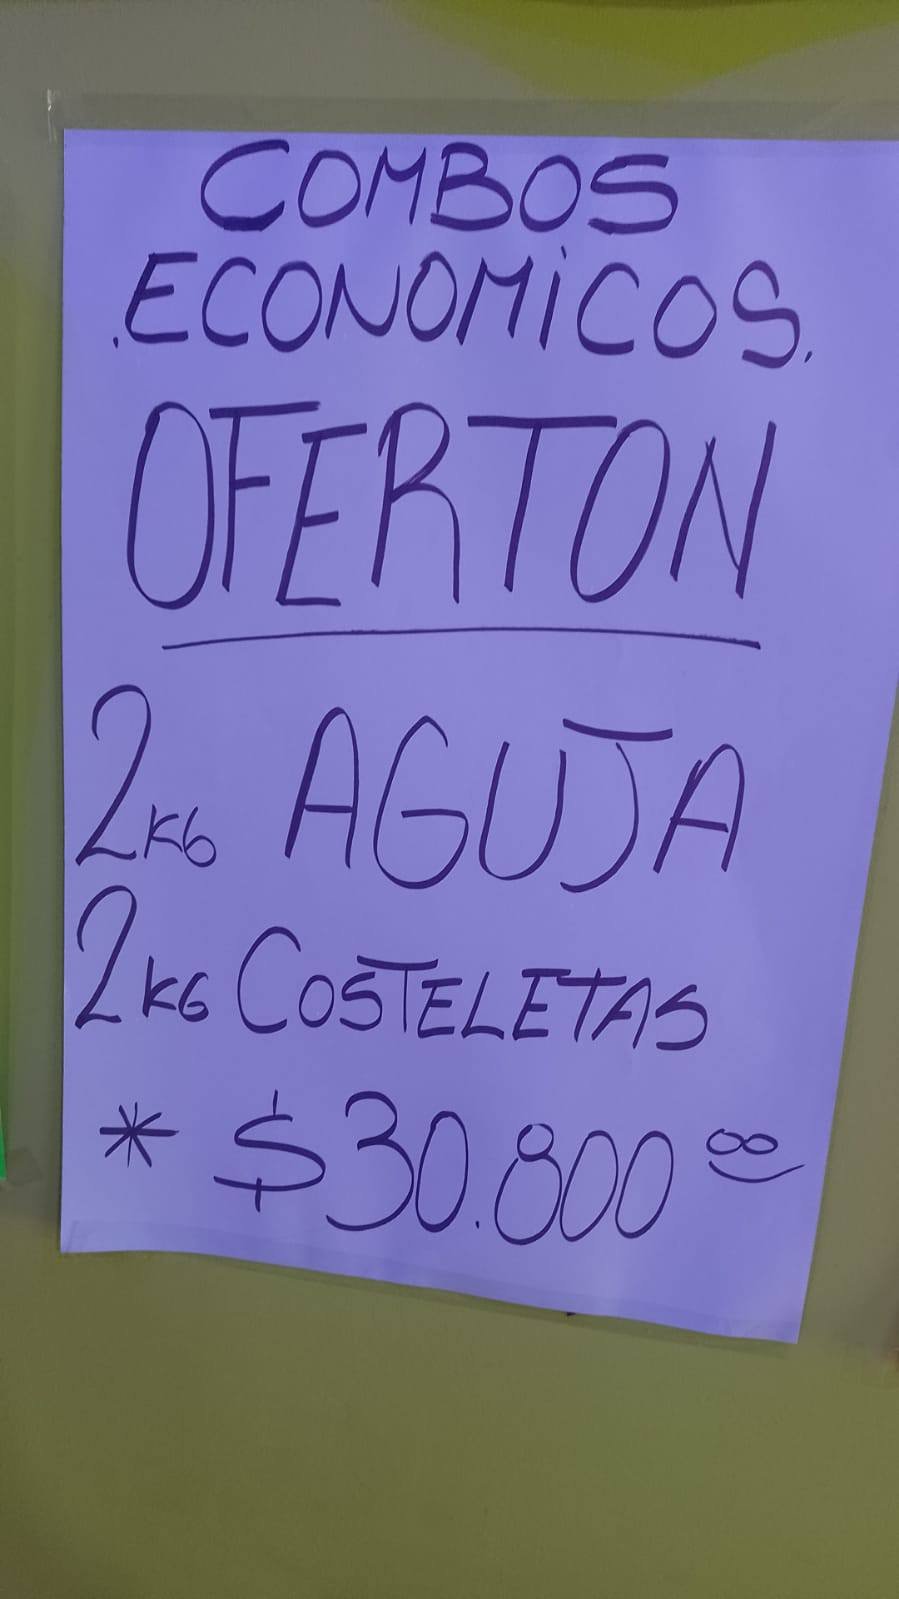 COMBOS
.ECONOMiCOS.
OFERTON
2KG AGUJA
2KG COSTELETAS
* $30.800